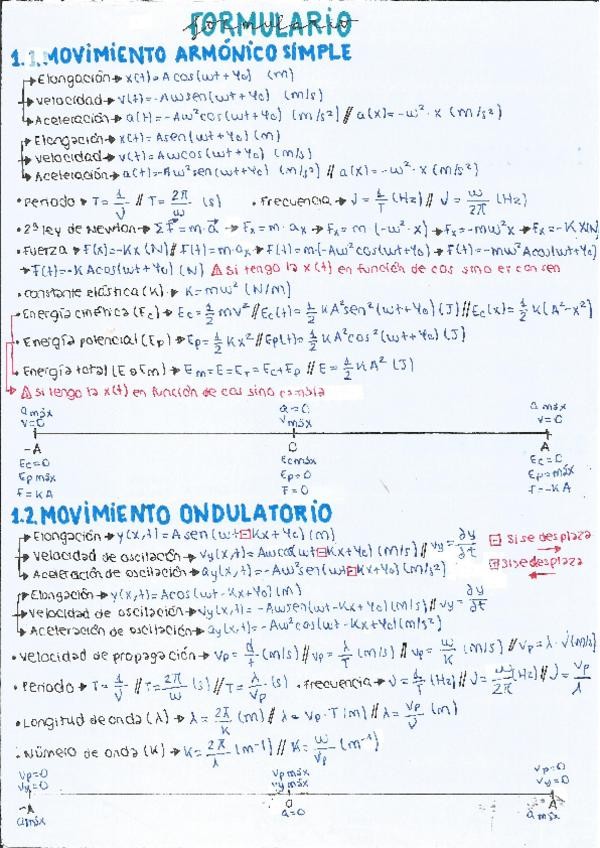 FORMULARIO
1.1.MOVIMIENTO ARMÓNICO SIMPLE
→Elongación→ x(t)=A cos(ωt+φ₀) (m)
→velocidad→ v(t)=-Aωsen(ωt+φ₀) (m/s)
→Aceleración→ a(t)=-Aω²cos(ωt+φ₀) (m/s²) // a(x)=-ω²·x (m/s²)
→Elongación→ x(t)=Asen(ωt+φ₀) (m)
→velocidad→ v(t)=Aωcos(ωt+φ₀) (m/s)
→Aceleración→ a(t)=-Aω²sen(ωt+φ₀) (m/s²) // a(x)=-ω²·x (m/s²)
•Periodo→ T=1/ν // T=2π/ω (s) •Frecuencia→ ν=1/T (Hz) // ν=ω/2π (Hz)
•2ª ley de Newton→ ΣF=m·a→ Fx=m·ax→ Fx=m(-ω²·x)→ Fx=-mω²x→ Fx=-KX(N)
•Fuerza→ F(x)=-Kx (N)// F(t)=m·ax→ F(t)=m·(-Aω²cos(ωt+φ₀)→ F(t)=-mω²Acos(ωt+φ₀)
→F(t)=-KAcos(ωt+φ₀) (N) ⚠ si tengo la x(t) en función de cos sino es con sen
•constante elástica (K)→ K=mω² (N/m)
•Energía cinética (Ec)→ Ec=1/2 mv² // Ec(t)=1/2 KA²sen²(ωt+φ₀) (J)//Ec(x)=1/2 K(A²-x²)
•Energía potencial (Ep)→ Ep=1/2 Kx² // Ep(t)=1/2 KA²cos²(ωt+φ₀) (J)
•Energía total (E o Em)→ Em=E=ET=Ec+Ep // E=1/2 KA² (J)
→⚠ si tengo la x(t) en función de cos sino cambia
a máx a=0 a máx
v=0 v máx v=0
-A 0 A
Ec=0 Ec máx Ec=0
Ep máx Ep=0 Ep=máx
F=KA F=0 F=-KA
1.2.MOVIMIENTO ONDULATORIO
→Elongación→ y(x,t)=Asen(ωt-Kx+φ₀) (m)
→velocidad de oscilación→ vy(x,t)=Aωcos(ωt-Kx+φ₀) (m/s) // vy=∂y/∂t
→Aceleración de oscilación→ ay(x,t)=-Aω²sen(ωt-Kx+φ₀) (m/s²)
⊟ Si se desplaza →
⊞ Si se desplaza ←
→Elongación→ y(x,t)=Acos(ωt-Kx+φ₀) (m)
→velocidad de oscilación→ vy(x,t)=-Aωsen(ωt-Kx+φ₀) (m/s)// vy=∂y/∂t
→Aceleración de oscilación→ ay(x,t)=-Aω²cos(ωt-Kx+φ₀) (m/s²)
•velocidad de propagación→ vp=d/t (m/s) // vp=λ/T (m/s) // vp=ω/K (m/s) // vp=λ·ν (m/s)
•Periodo→ T=1/ν // T=2π/ω (s) // T=λ/vp (s) •frecuencia→ ν=1/T (Hz) // ν=ω/2π (Hz) // ν=vp/λ
•Longitud de onda (λ)→ λ=2π/K (m) // λ=vp·T (m) // λ=vp/ν (m)
•Número de onda (K)→ K=2π/λ (m⁻¹) // K=ω/vp (m⁻¹)
vp=0 vp máx vp=0
vy=0 vy máx vy=0
-A 0 A
a máx a=0 a máx